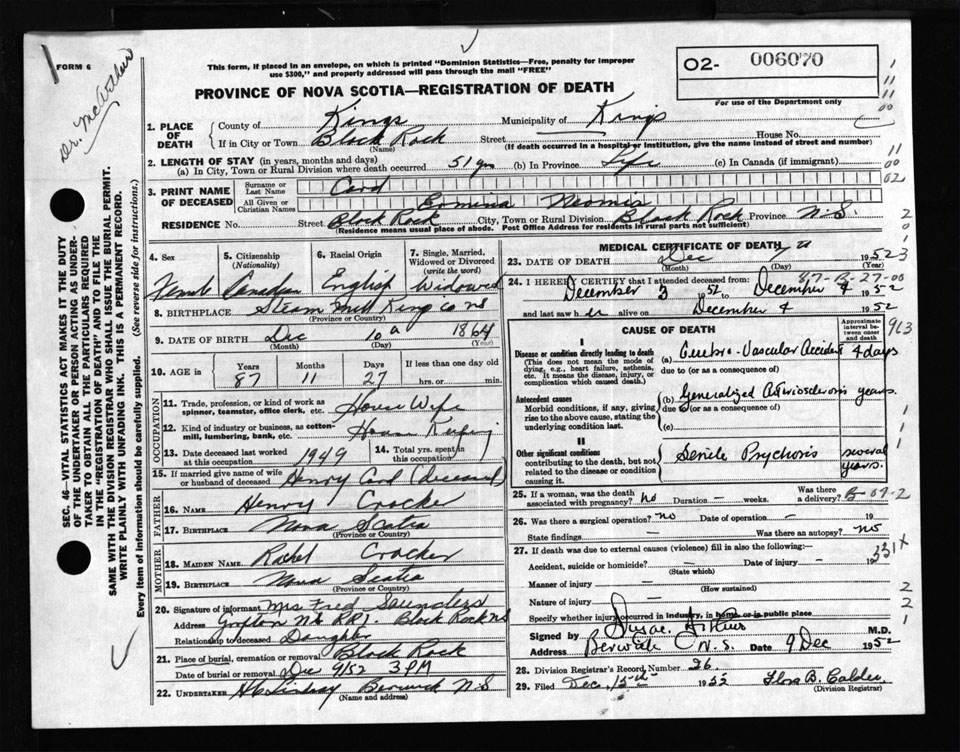 FORM 6
Dr. McArthur
This form, if placed in an envelope, on which is printed "Dominion Statistics—Free, penalty for improper
use $300," and properly addressed will pass through the mail "FREE"
O2- 006070
For use of the Department only
PROVINCE OF NOVA SCOTIA—REGISTRATION OF DEATH
1. PLACE OF DEATH County of Kings Municipality of Kings
If in City or Town Black Rock Street House No.
(Name) (If death occurred in a hospital or institution, give the name instead of street and number)
2. LENGTH OF STAY (in years, months and days)
(a) In City, Town or Rural Division where death occurred 51 yrs (b) In Province Life (c) In Canada (if immigrant)
3. PRINT NAME OF DECEASED Surname or Last Name Card
All Given or Christian Names Romina Neomia
RESIDENCE No. Street Black Rock City, Town or Rural Division Black Rock Province N.S.
(Residence means place of abode. Post Office Address for residents in rural parts not sufficient)
4. Sex 5. Citizenship (Nationality) 6. Racial Origin 7. Single, Married, Widowed or Divorced (write the word)
Female Canadian English Widowed
8. BIRTHPLACE Steam Mill King co ns
(Province or Country)
9. DATE OF BIRTH Dec 10 1864
(Month) (Day) (Year)
10. AGE in Years Months Days If less than one day
87 11 27 hrs. or min.
OCCUPATION
11. Trade, profession, or kind of work as spinner, teamster, office clerk, etc. House Wife
12. Kind of industry or business, as cotton-mill, lumbering, bank, etc. House Keeping
13. Date deceased last worked at this occupation 1949 14. Total yrs. spent in this occupation
15. If married give name of wife or husband of deceased Henry Card (deceased)
FATHER
16. NAME Henry Crocker
17. BIRTHPLACE Nova Scotia
(Province or Country)
MOTHER
18. MAIDEN NAME Rachel Crocker
19. BIRTHPLACE Nova Scotia
(Province or Country)
20. Signature of informant Mrs Fred Saunders
Address Grafton NS RR1 Black Rock ns
Relationship to deceased Daughter
21. Place of burial, cremation or removal Black Rock
Date of burial or removal Dec 9/52 3 PM
22. UNDERTAKER Berwick N S
(Name and address)
MEDICAL CERTIFICATE OF DEATH
23. DATE OF DEATH Dec 7 1952
(Month) (Day) (Year)
24. I HEREBY CERTIFY that I attended deceased from:
December 3 1952 to December 4 1952
and last saw her alive on December 4 1952
CAUSE OF DEATH
Approximate interval between onset and death
I
Disease or condition directly leading to death (a) Cerebro-Vascular Accident 4 days
(This does not mean the mode of dying, e.g., heart failure, asthenia, etc. It means the disease, injury, or complication which caused death.)
due to (or as a consequence of)
Antecedent causes (b) Generalized Arteriosclerosis years.
Morbid conditions, if any, giving rise to the above cause, stating the underlying condition last.
due to (or as a consequence of)
(c)
II
Other significant conditions Senile Psychosis several years.
contributing to the death, but not related to the disease or condition causing it.
25. If a woman, was the death associated with pregnancy? no Duration — weeks. Was there a delivery?
26. Was there a surgical operation? no Date of operation —
State findings — Was there an autopsy? no
27. If death was due to external causes (violence) fill in also the following:—
Accident, suicide or homicide? — Date of injury — 19
(State which)
Manner of injury —
(How sustained)
Nature of injury —
Specify whether injury occurred in industry, in home or in public place
Signed by M.D.
Address Berwick N.S. Date 9 Dec 1952
28. Division Registrar's Record Number 26
29. Filed Dec. 15th 1952 Flora B. Calder
(Division Registrar)
SEC. 46—VITAL STATISTICS ACT MAKES IT THE DUTY
OF THE UNDERTAKER OR PERSON ACTING AS UNDER-
TAKER TO OBTAIN ALL THE PARTICULARS REQUIRED
IN THE "REGISTRATION OF DEATH" AND TO FILE THE
SAME WITH THE DIVISION REGISTRAR WHO SHALL ISSUE THE BURIAL PERMIT.
WRITE PLAINLY WITH UNFADING INK. THIS IS A PERMANENT RECORD.
Every item of information should be carefully supplied. (See reverse side for instructions.)